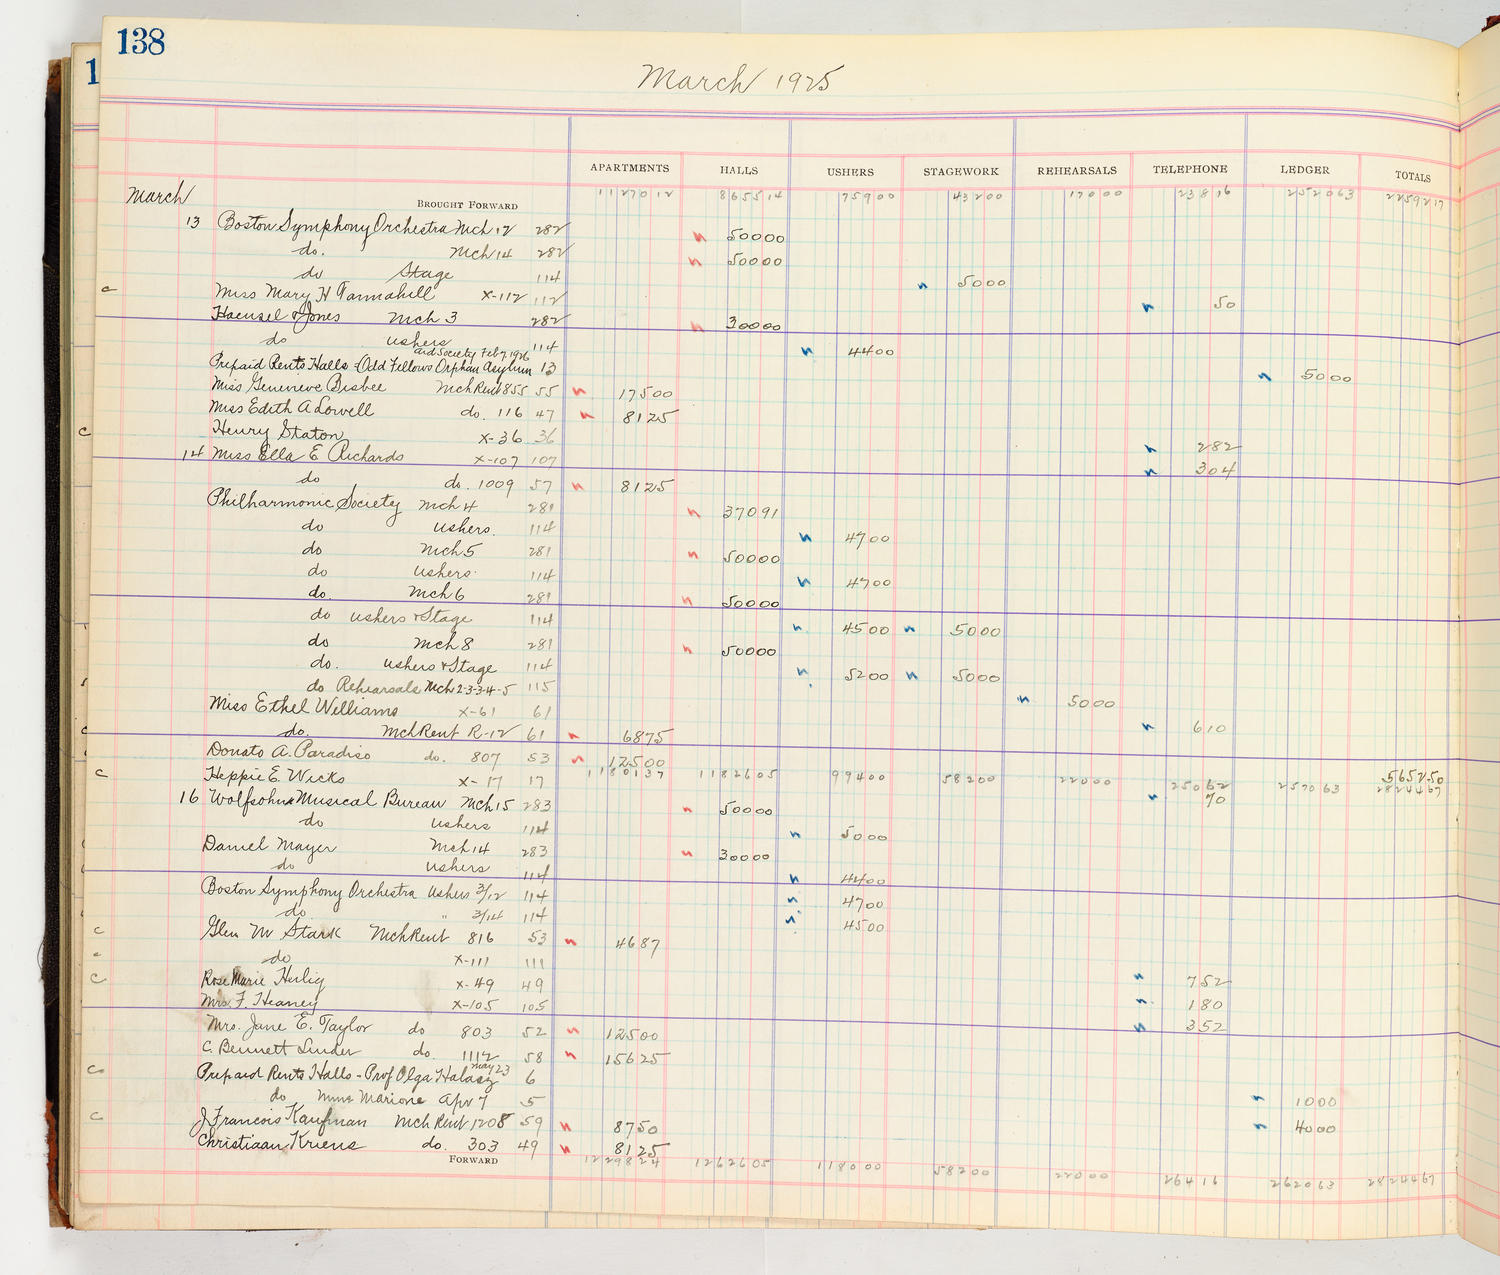 138
1
March 1925
APARTMENTS HALLS USHERS STAGEWORK REHEARSALS TELEPHONE LEDGER TOTALS
March BROUGHT FORWARD 1127012 865514 75900 43200 17000 23816 252063 2259217
13 Boston Symphony Orchestra Mch 12 282 50000
do. Mch 14 282 50000
do Stage 114 5000
c Miss Mary H Tannahill X-112 112 50
Haensel & Jones Mch 3 282 30000
do ushers 114 4400
and Society Feb 7, 1926
Prepaid Rents Halls - Odd Fellows Orphan Asylum 13 5000
Miss Genevieve Bisbee Mch Rent 855 55 17500
Miss Edith A Lowell do. 116 47 8125
c Henry Staton X-36 36 282
14 Miss Ella E Richards X-107 107 304
do do. 1009 57 8125
Philharmonic Society Mch 4 281 37091
do ushers. 114 4700
do Mch 5 281 50000
do ushers. 114 4700
do. Mch 6 281 50000
do ushers & Stage 114 4500 5000
do Mch 8 281 50000
do. ushers & Stage 114 5200 5000
do Rehearsals Mch 2-3-3-4-5 115 5000
Miss Ethel Williams X-61 61 610
c do. Mch Rent R-12 61 6875
Donato A. Paradiso do. 807 53 12500
1180137 1182605 99400 58200 22000 25062 257063 2824467
565250
c Heppie E. Wicks X-17 17 70
16 Wolfsohn Musical Bureau Mch 15 283 50000
do ushers 114 5000
Daniel Mayer Mch 14 283 30000
do ushers 114 4400
Boston Symphony Orchestra Ushers 3/12 114 4700
do. " 3/14 114 4500
c Glen M Stark Mch Rent 816 53 4687
c do X-111 111 752
c Rose Marie Heilig X-49 49 180
Mrs. F. Heaney X-105 105 352
Mrs. Jane E. Taylor do 803 52 12500
C. Bennett Linder do. 1112 58 15625
May 23
c Prepaid Rents Halls - Prof Olga Halasz 6 1000
do Mme Marione Apr 7 5 4000
c J Francois Kaufman Mch Rent 1208 59 8750
Christiaan Kriens do. 303 49 8125
FORWARD 1229824 1262605 118000 58200 22000 26416 262063 2824467